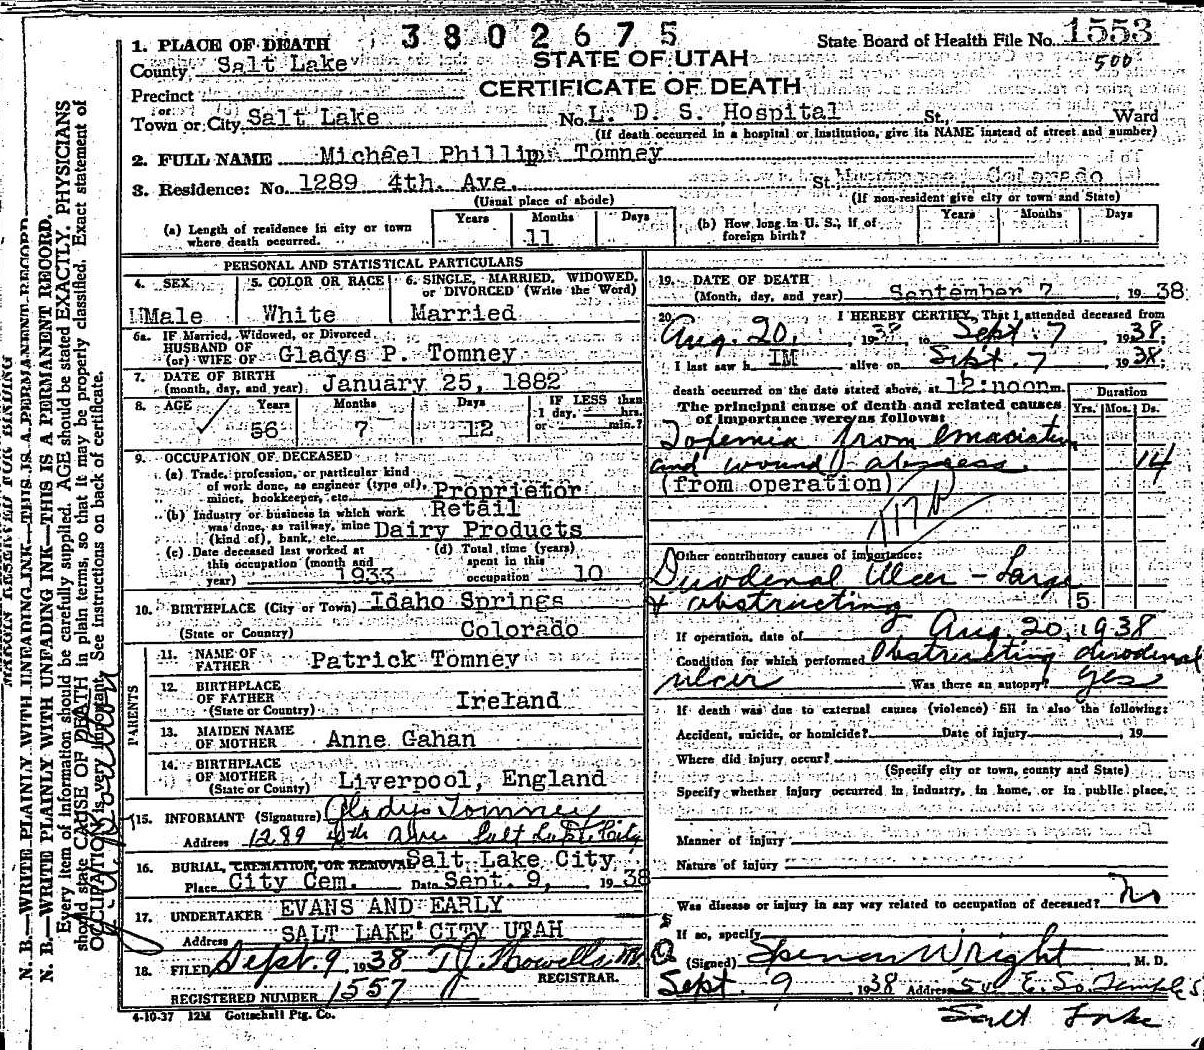 3802675
State Board of Health File No. 1553
500
STATE OF UTAH
CERTIFICATE OF DEATH
1. PLACE OF DEATH
County Salt Lake
Precinct
or
Town or City Salt Lake No. L. D. S. Hospital St., Ward
(If death occurred in a hospital or institution, give its NAME instead of street and number)
2. FULL NAME Michael Phillip Tomney
3. Residence: No. 1289 4th. Ave. St. Colorado
(Usual place of abode) (If non-resident give city or town and State)
(a) Length of residence in city or town where death occurred. Years Months 11 Days
(b) How long in U. S., if of foreign birth? Years Months Days
PERSONAL AND STATISTICAL PARTICULARS
4. SEX Male
5. COLOR OR RACE White
6. SINGLE, MARRIED, WIDOWED, or DIVORCED (Write the Word) Married
6a. IF Married, Widowed, or Divorced
HUSBAND OF
(or) WIFE OF Gladys P. Tomney
7. DATE OF BIRTH
(month, day, and year) January 25, 1882
8. AGE Years 56 Months 7 Days 12 IF LESS than 1 day, hrs. or min.?
9. OCCUPATION OF DECEASED
(a) Trade, profession, or particular kind of work done, as engineer (type of), miner, bookkeeper, etc. Proprietor
(b) Industry or business in which work was done, as railway, mine (kind of), bank, etc. Retail Dairy Products
(c) Date deceased last worked at this occupation (month and year) 1933
(d) Total time (years) spent in this occupation 10
10. BIRTHPLACE (City or Town) Idaho Springs
(State or Country) Colorado
PARENTS
11. NAME OF FATHER Patrick Tomney
12. BIRTHPLACE OF FATHER (State or Country) Ireland
13. MAIDEN NAME OF MOTHER Anne Gahan
14. BIRTHPLACE OF MOTHER (State or Country) Liverpool, England
15. INFORMANT (Signature) Gladys Tomney
Address 1289 4th Ave Salt Lake City
16. BURIAL, CREMATION, OR REMOVAL Salt Lake City
Place City Cem. Date Sept. 9, 1938
17. UNDERTAKER EVANS AND EARLY
Address SALT LAKE CITY UTAH
18. FILED Sept. 9 1938 T.J. Howells M.
REGISTRAR.
REGISTERED NUMBER 1557
4-10-37 12M Gottschall Ptg. Co.
19. DATE OF DEATH
(Month, day, and year) September 7 1938
20. I HEREBY CERTIFY, That I attended deceased from
Aug. 20, 1938 to Sept. 7 1938;
I last saw h IM alive on Sept. 7 1938;
death occurred on the date stated above, at 12:noon m.
The principal cause of death and related causes of importance were as follows: Duration Yrs. Mos. Ds.
Toxemia from emaciation
and wound abscess 14
(from operation)
117b
Other contributory causes of importance:
Duodenal Ulcer - Large
& obstructing 5
If operation, date of Aug. 20, 1938
Condition for which performed Obstructing duodenal
ulcer Was there an autopsy? yes
If death was due to external causes (violence) fill in also the following:
Accident, suicide, or homicide? Date of injury 19
Where did injury occur?
(Specify city or town, county and State)
Specify whether injury occurred in industry, in home, or in public place,
Manner of injury
Nature of injury
Was disease or injury in any way related to occupation of deceased? No
If so, specify
(Signed) Spencer Wright M. D.
Sept. 9 1938 Address E. So. Temple St
Salt Lake
MARGIN RESERVED FOR BINDING
N. B.—WRITE PLAINLY WITH UNFADING INK—THIS IS A PERMANENT RECORD.
N. B.—WRITE PLAINLY WITH UNFADING INK—THIS IS A PERMANENT RECORD.
Every item of information should be carefully supplied. AGE should be stated EXACTLY. PHYSICIANS
should state CAUSE OF DEATH in plain terms, so that it may be properly classified. Exact statement of
OCCUPATION is very important. See instructions on back of certificate.